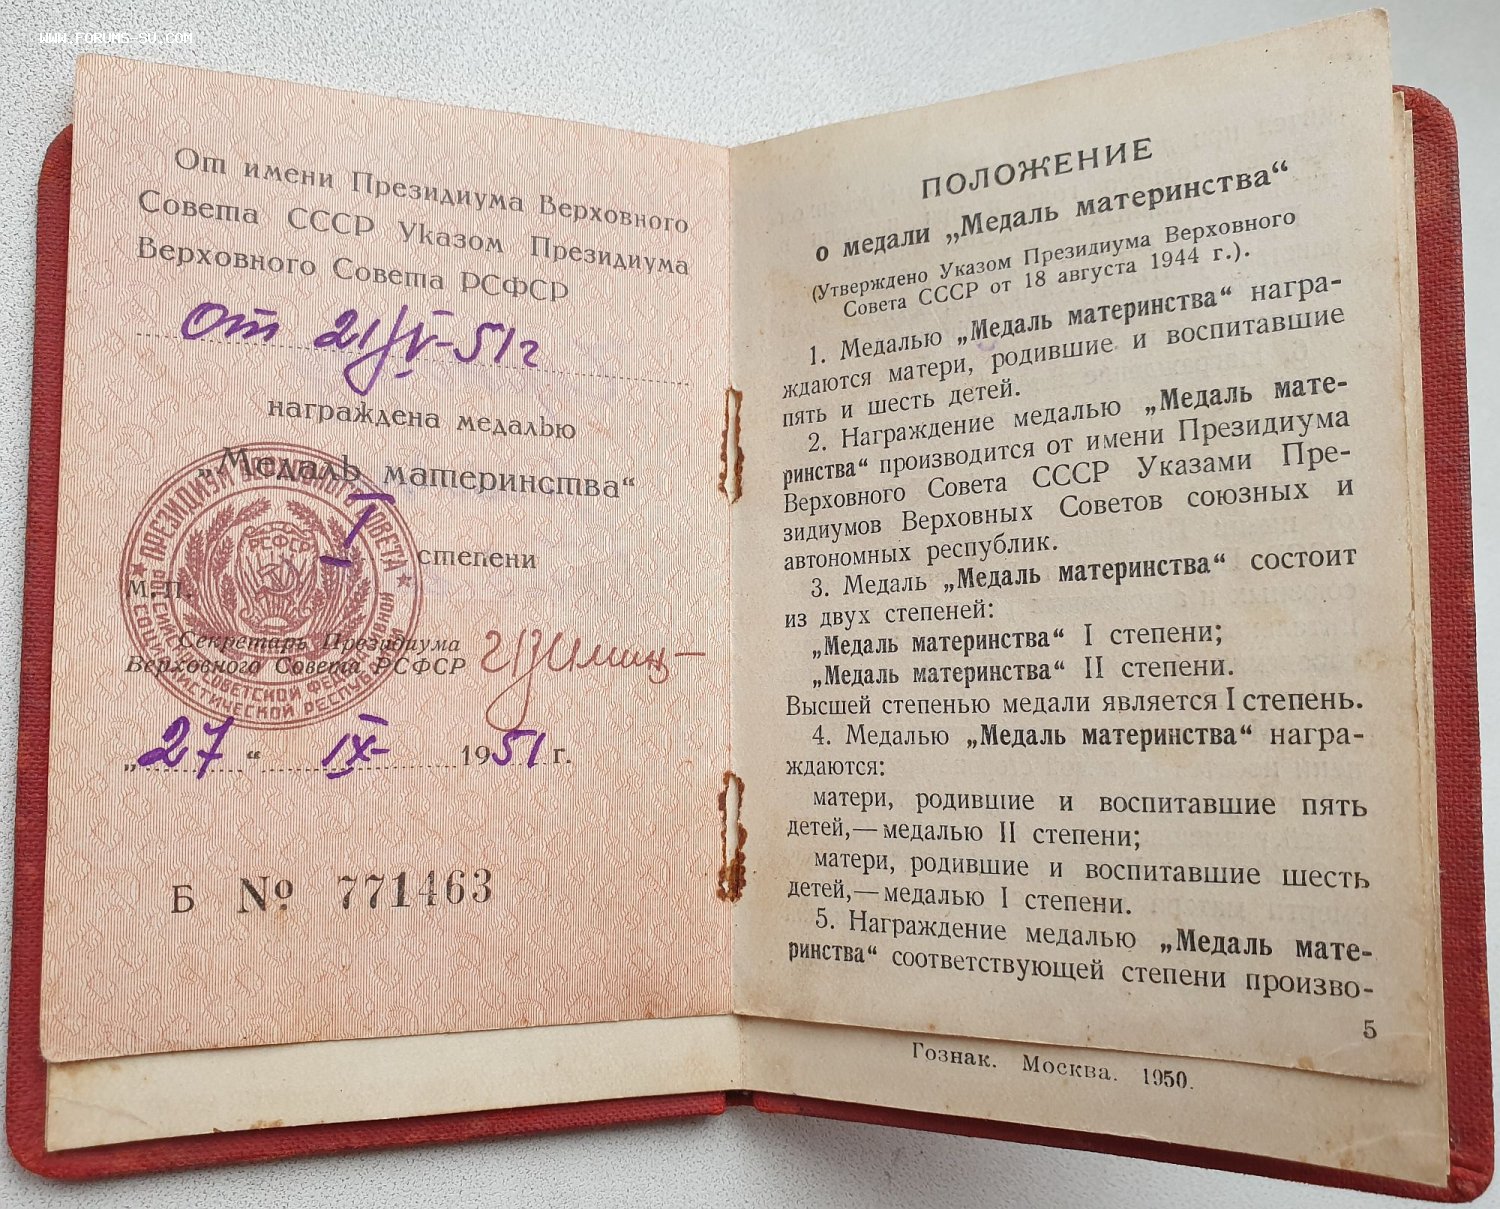 WWW.FORUMS-SU.COM
От имени Президиума Верховного
Совета СССР Указом Президиума
Верховного Совета РСФСР
награждена медалью
„Медаль материнства“
I
степени
М. П.
РСФСР
Секретарь Президиума
Верховного Совета РСФСР
„27“ IX- 1951 г.
Б № 771463
ПОЛОЖЕНИЕ
о медали „Медаль материнства“
(Утверждено Указом Президиума Верховного
Совета СССР от 18 августа 1944 г.).
1. Медалью „Медаль материнства“ награ-
ждаются матери, родившие и воспитавшие
пять и шесть детей.
2. Награждение медалью „Медаль мате-
ринства“ производится от имени Президиума
Верховного Совета СССР Указами Пре-
зидиумов Верховных Советов союзных и
автономных республик.
3. Медаль „Медаль материнства“ состоит
из двух степеней:
„Медаль материнства“ I степени;
„Медаль материнства“ II степени.
Высшей степенью медали является I степень.
4. Медалью „Медаль материнства“ награ-
ждаются:
матери, родившие и воспитавшие пять
детей,—медалью II степени;
матери, родившие и воспитавшие шесть
детей,—медалью I степени.
5. Награждение медалью „Медаль мате-
ринства“ соответствующей степени произво-
5
Гознак. Москва. 1950.